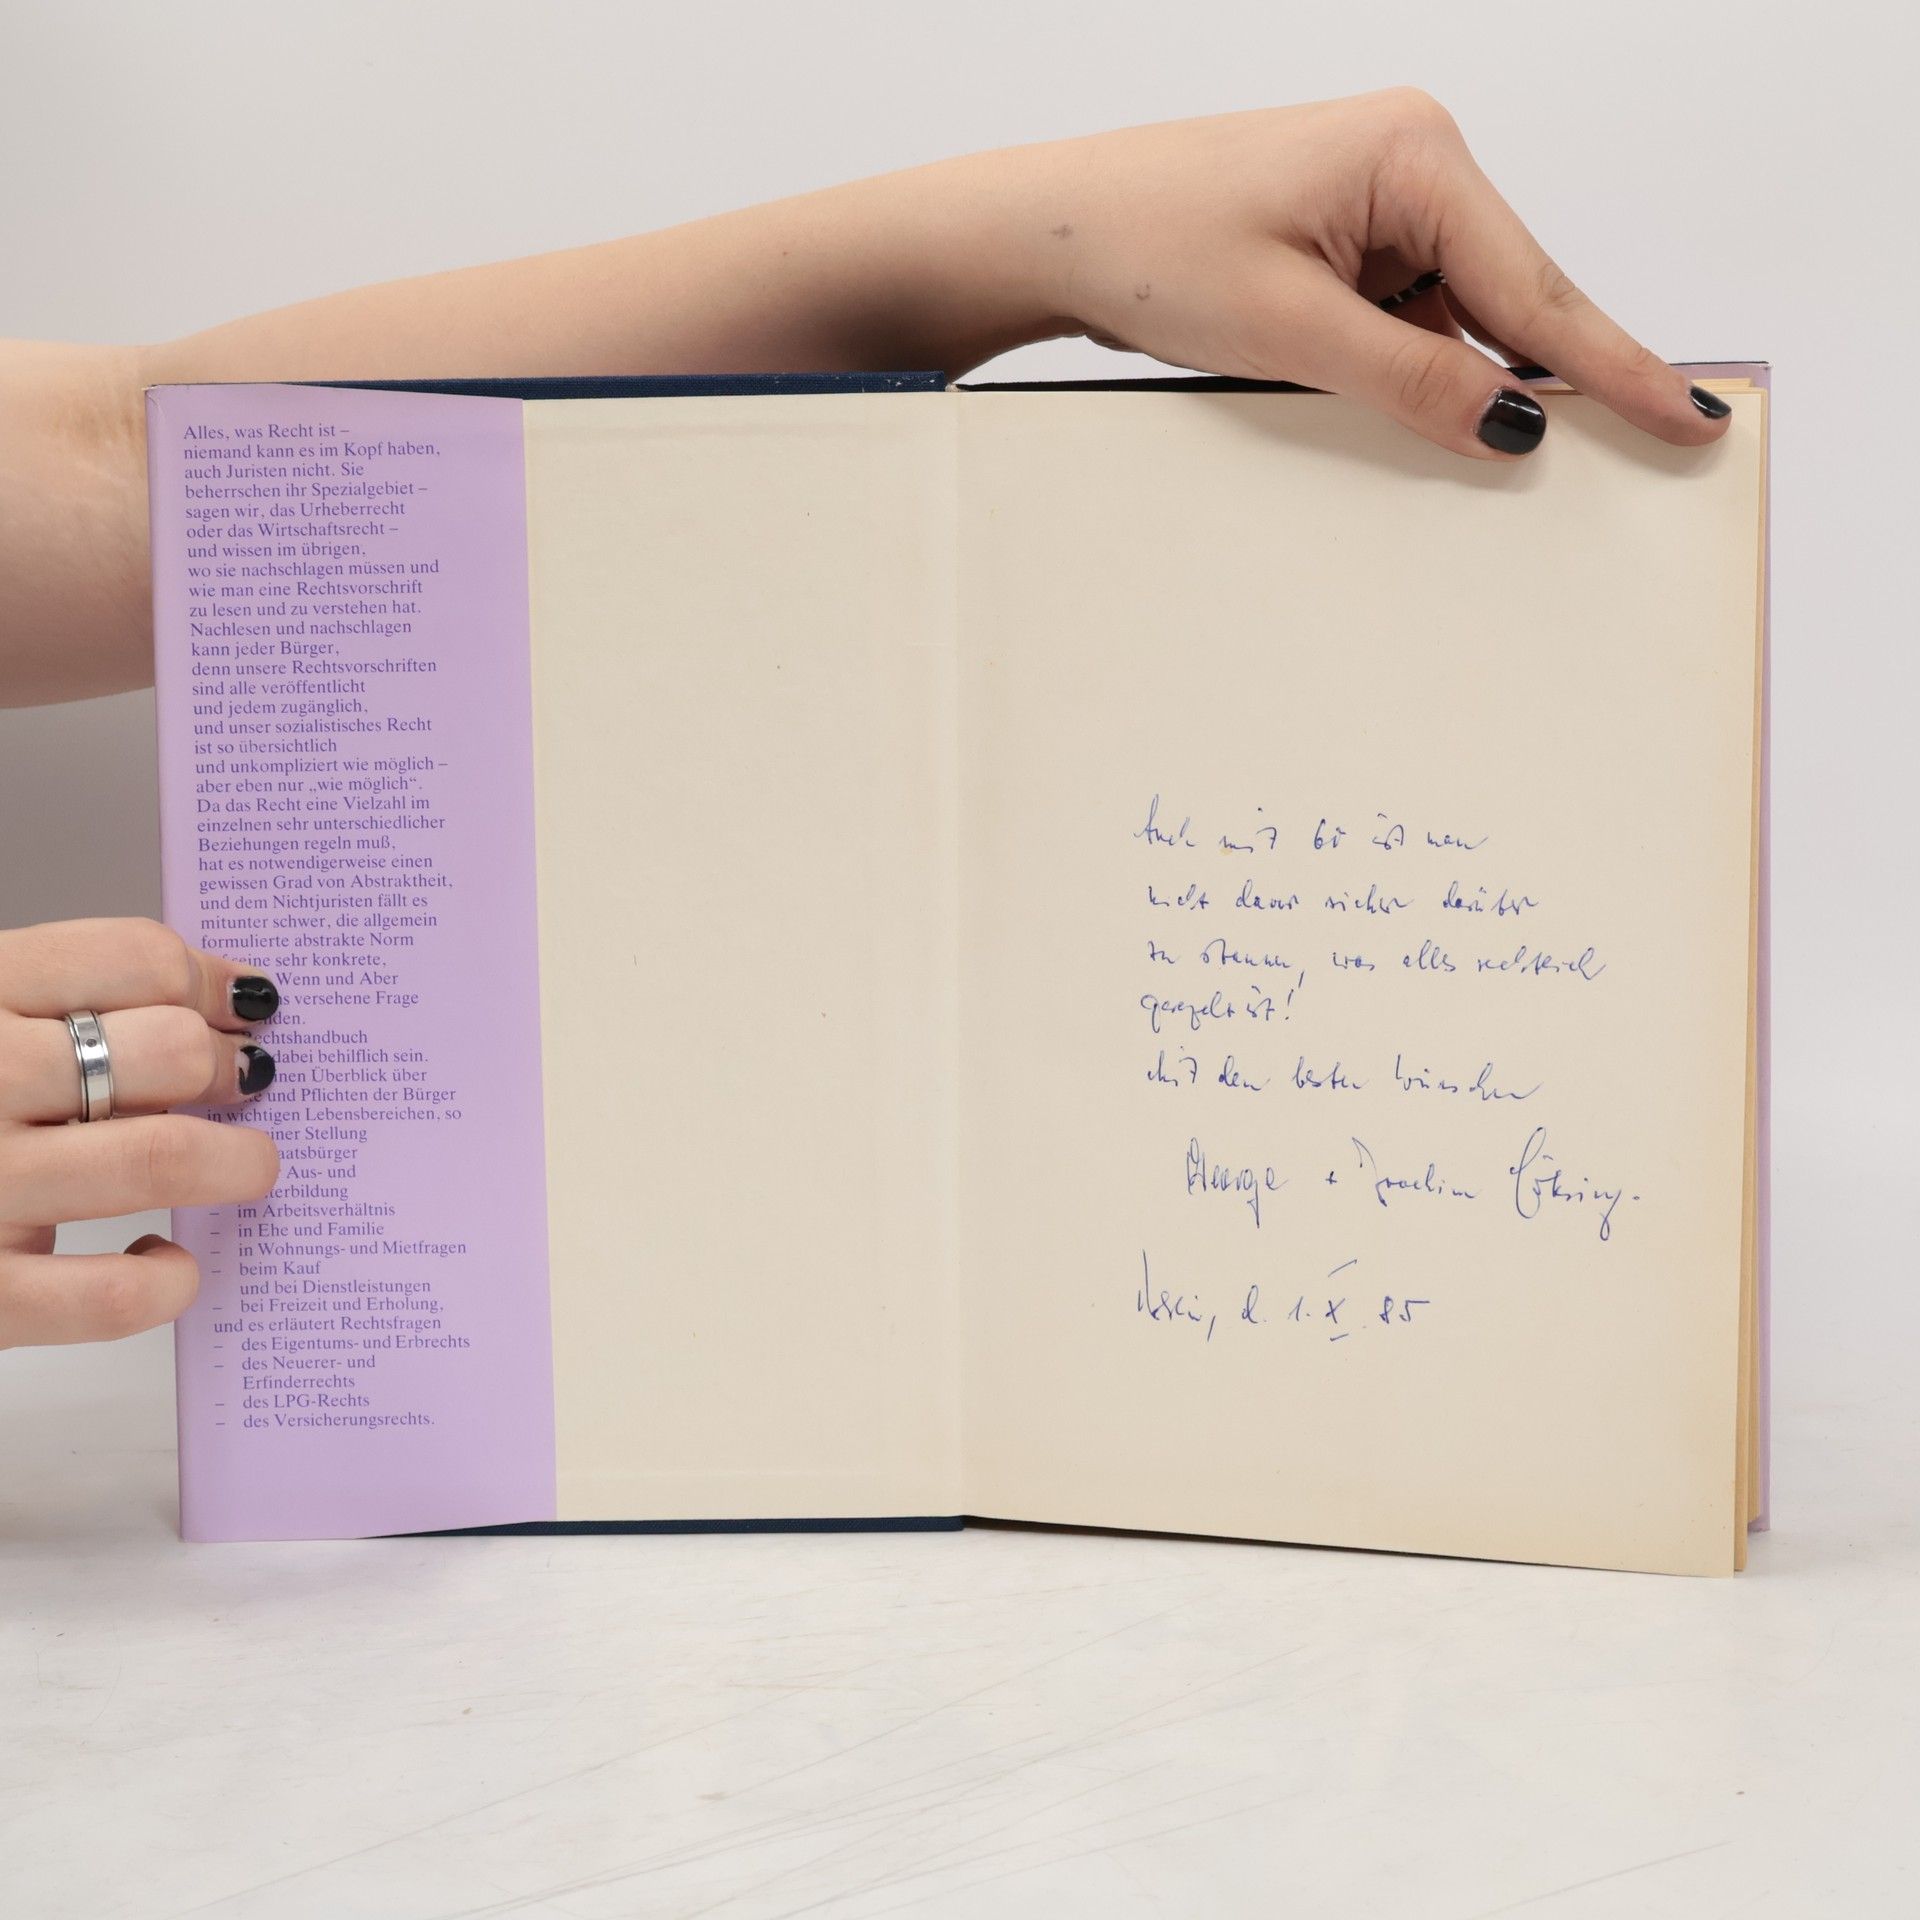 Alles, was Recht ist –
niemand kann es im Kopf haben,
auch Juristen nicht. Sie
beherrschen ihr Spezialgebiet –
sagen wir, das Urheberrecht
oder das Wirtschaftsrecht –
und wissen im übrigen,
wo sie nachschlagen müssen und
wie man eine Rechtsvorschrift
zu lesen und zu verstehen hat.
Nachlesen und nachschlagen
kann jeder Bürger,
denn unsere Rechtsvorschriften
sind alle veröffentlicht
und jedem zugänglich,
und unser sozialistisches Recht
ist so übersichtlich
und unkompliziert wie möglich –
aber eben nur „wie möglich“.
Da das Recht eine Vielzahl im
einzelnen sehr unterschiedlicher
Beziehungen regeln muß,
hat es notwendigerweise einen
gewissen Grad von Abstraktheit,
und dem Nichtjuristen fällt es
mitunter schwer, die allgemein
formulierte abstrakte Norm
eine sehr konkrete,
Wenn und Aber
versehene Frage
echtshandbuch
dabei behilflich sein.
inen Überblick über
und Pflichten der Bürger
in wichtigen Lebensbereichen, so
einer Stellung
aatsbürger
Aus- und
terbildung
– im Arbeitsverhältnis
– in Ehe und Familie
– in Wohnungs- und Mietfragen
– beim Kauf
und bei Dienstleistungen
– bei Freizeit und Erholung,
und es erläutert Rechtsfragen
– des Eigentums- und Erbrechts
– des Neuerer- und
Erfinderrechts
– des LPG-Rechts
– des Versicherungsrechts.
Auch mit 60 ist man
nicht davor sicher darüber
zu staunen, was alles rechtlich
geregelt ist!
Mit den besten Wünschen
+ Joachim
d. 1. X. 85